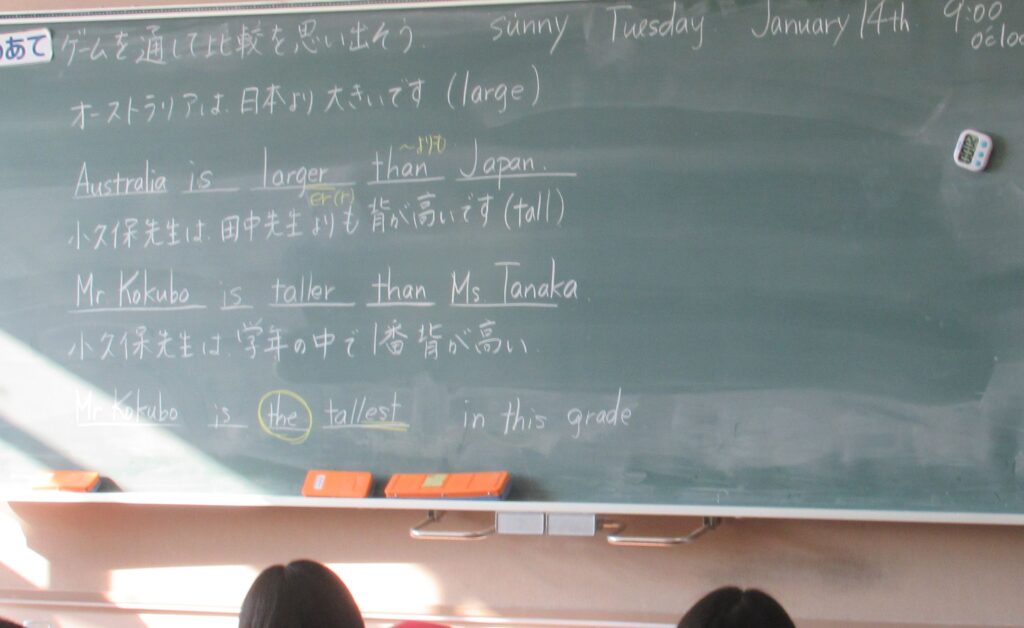 めあて ゲームを通して比較を思い出そう. sunny Tuesday January 14th 9:00
オーストラリアは、日本より大きいです (large)
〜よりも
Australia is larger than Japan.
er(r)
小久保先生は、田中先生よりも背が高いです (tall)
Mr Kokubo is taller than Ms Tanaka.
小久保先生は、学年の中で1番背が高い.
Mr Kokubo is the tallest in this grade